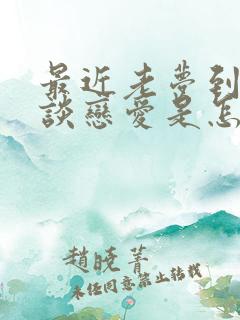 最近老夢到
談戀愛是怎
趙曉菁
未經同意禁止轉載